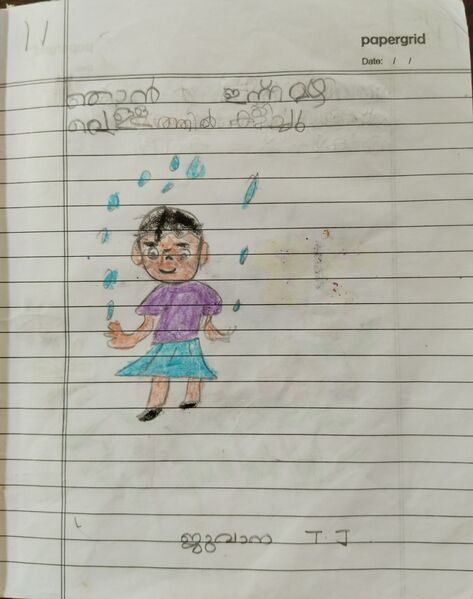 11
papergrid
Date: / /
ഞാൻ ഇന്ന് മഴ
വെള്ളത്തിൽ കളിച്ചു
ജുവാന T.J